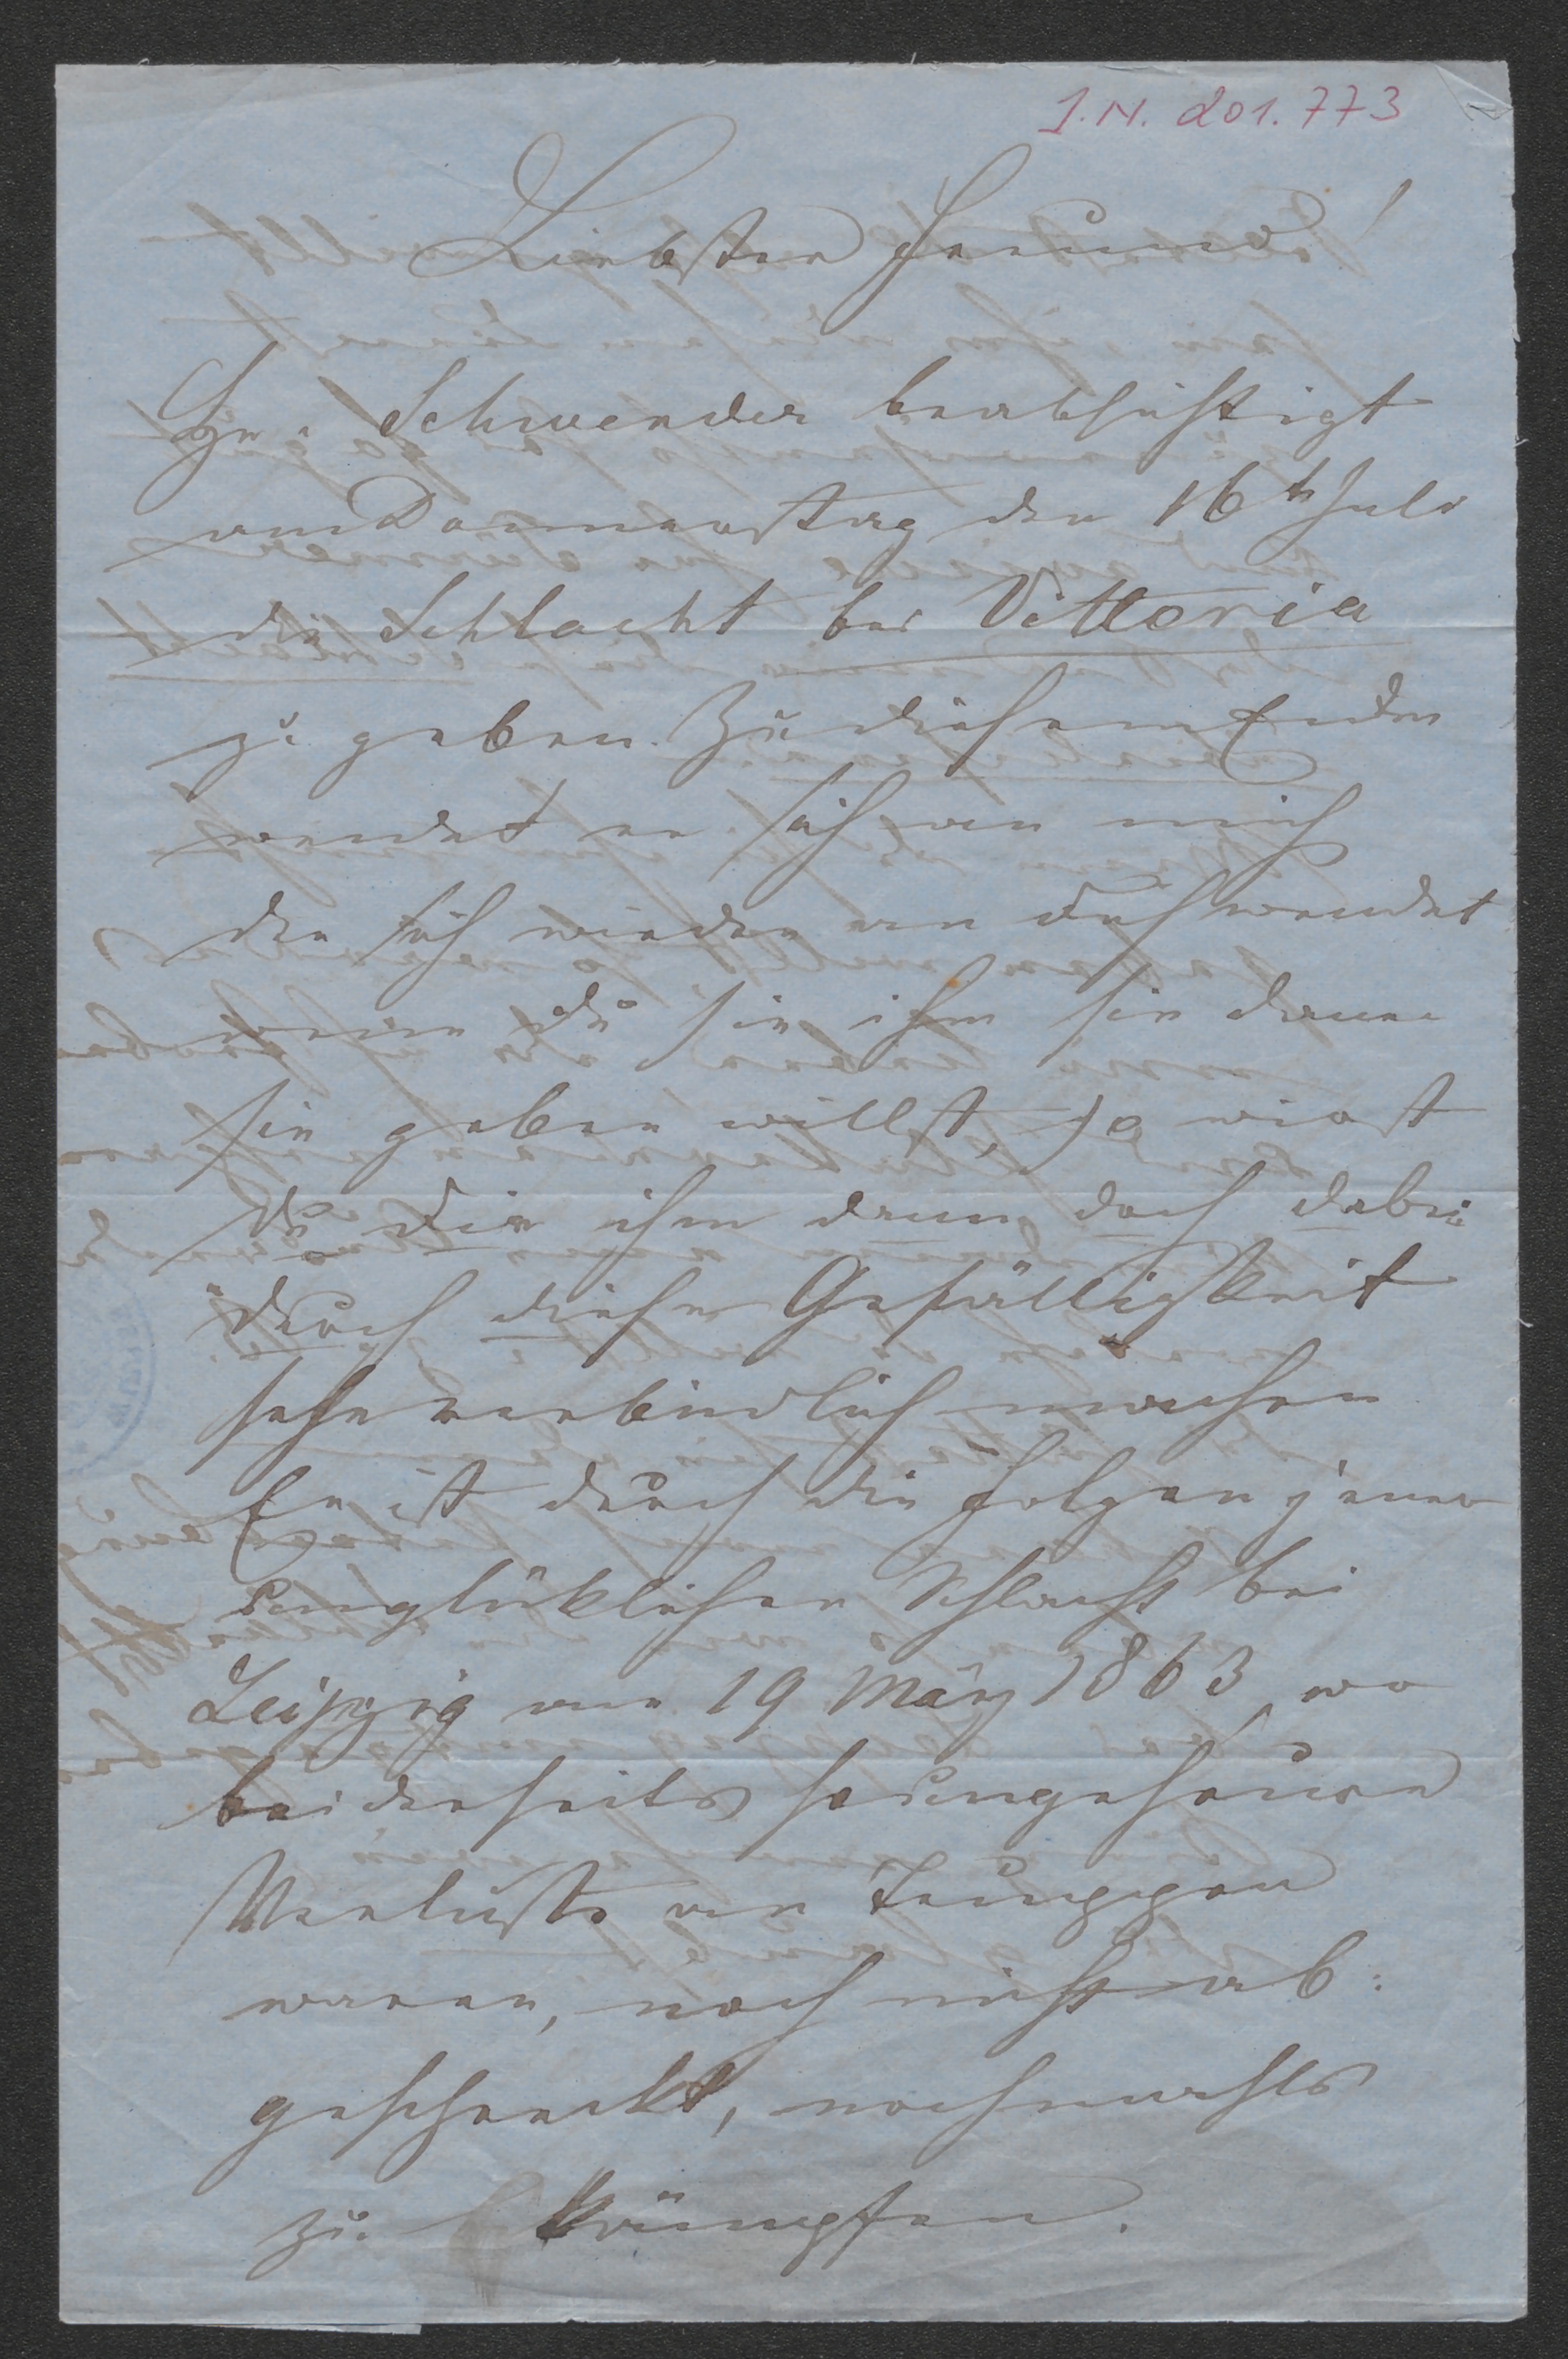 I.N. 201.773
Liebster Freund!
Hr. Schwender beabsichtigt
am Donnerstag den 16t Juli
die Schlacht bei Vittoria
zu geben. Zu diesem Ende
wendet er sich an mich
der sich wieder an dich wendet
wenn du sie ihm sie dann
sie geben willst, so wirst
du dir ihm dann doch dabei
durch diese Gefälligkeit
sehr verbindlich machen
Er ist durch die Folgen jener
unglüklichen Schlacht bei
Leipzig am 19 März 1863, wo
beiderseits so ungeheure
Verluste an Truppen
waren, noch nicht ab:
geschreckt, nochmahls
zu kämpfen.